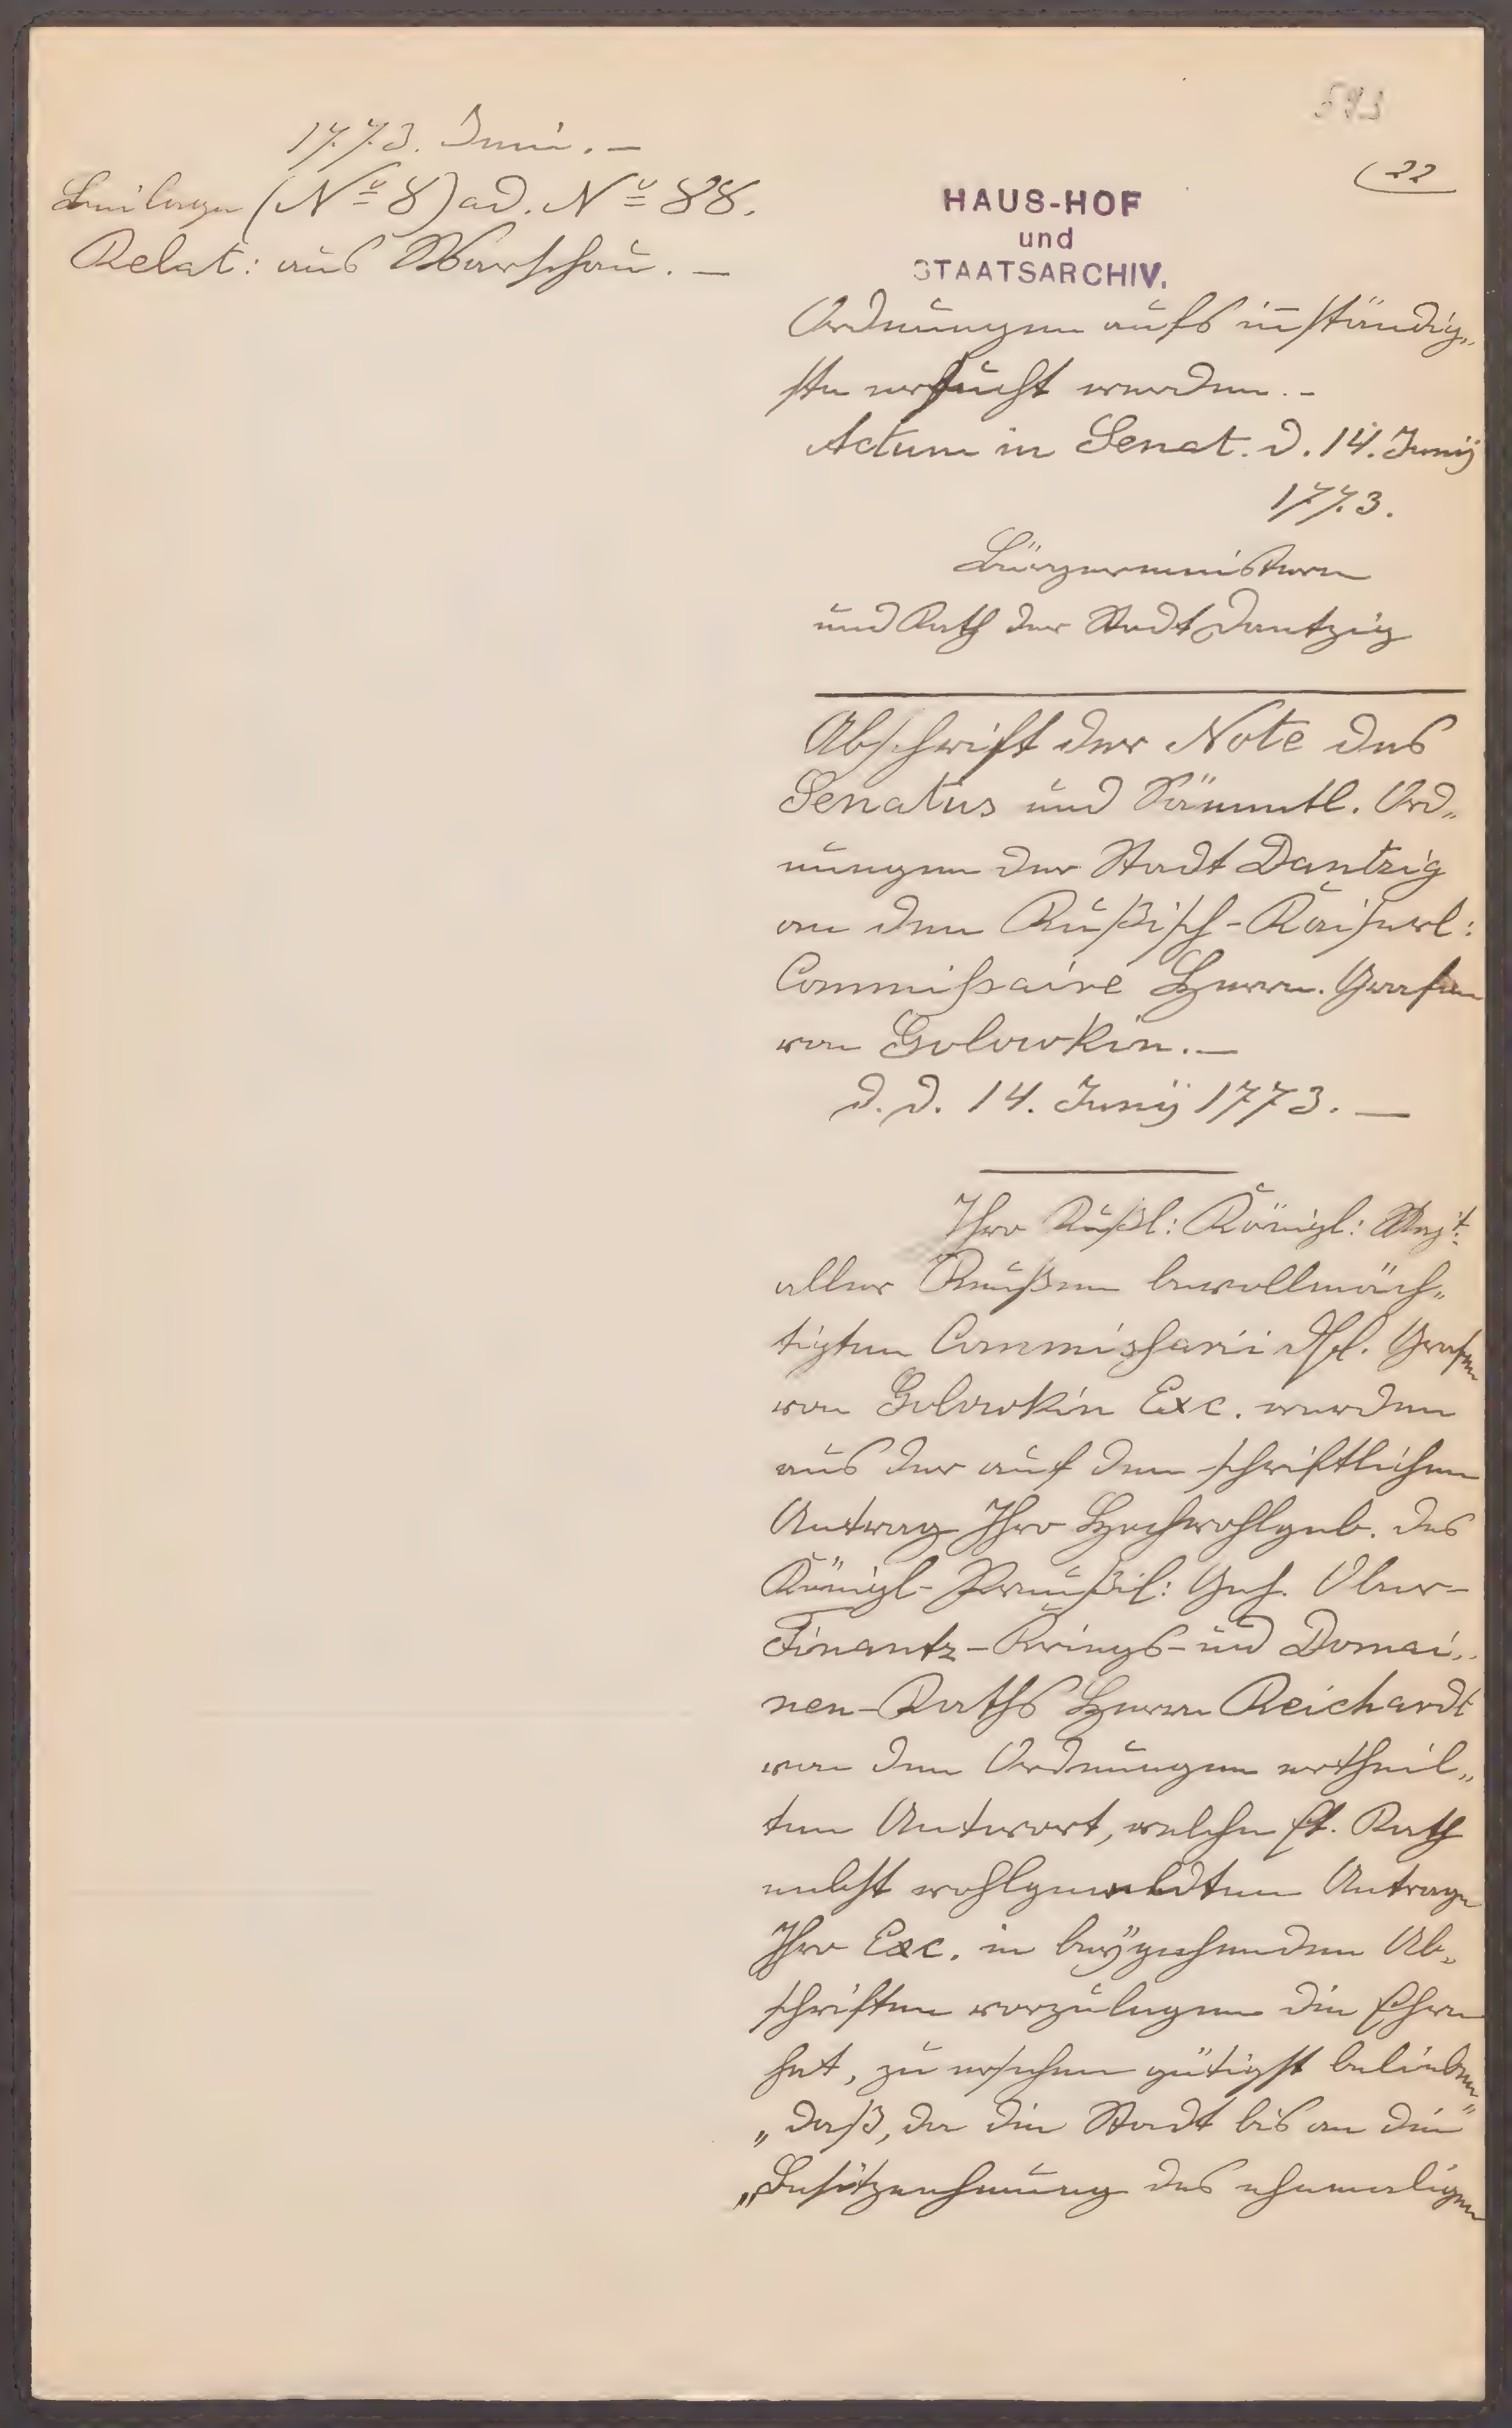 593
(22
1773. Juni. –
Beilage (Nº 8) ad. Nº 88.
Relat: aus Warschau. –
HAUS-HOF
und
STAATSARCHIV.
Ordnungen aufs inständig„
ste ersucht werden. –
Actum in Senat. d. 14. Junij
1773.
Bürgermeistere
und Rath der Stadt Dantzig
Abschrift der Note des
Senatus und Sämmtl. Ord„
nungen der Stadt Dantzig
an den Rußisch-Kaiserl:
Commißaire Herrn. Grafen
von Golowkin. –
d. d. 14. Junij 1773. –
Ihro Rußl: Königl: Majt:
aller Reußen bevollmäch„
tigten Commissarii Grafen
von Golowkin Exc. werden
aus der auf den schriftlichen
Antrag Ihro Hochwohlgeb. des
Königl-Preußil: Geh. Ober-
Finantz-Kriegs- und Domai„
nen-Raths Herrn Reichardt
von den Ordnungen ertheil„
ten Antwort, welche E. Rath
nebst wohlgemeldten Antrage
Ihro Exc. in beÿgehenden Ab„
schriften vorzulegen die Ehre
hat, zu ersehen gütigst belieben
„daß, da die Stadt bis an die"
„Besitznehmung des ehemaligen